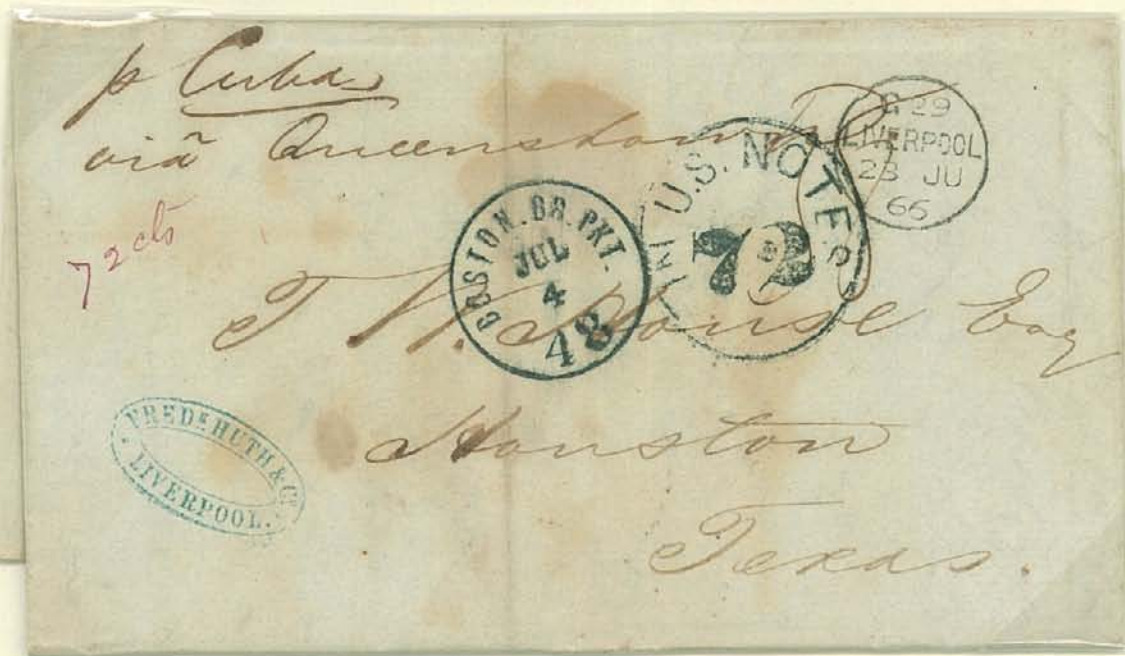 p Cuba
viâ Queenstown
G 29
LIVERPOOL
23 JU
66
IN U.S. NOTES
72
BOSTON. BR. PKT.
JUL
4
48
72 cts
T W. House Esq
Houston
Texas.
FREDK HUTH & Co
LIVERPOOL.